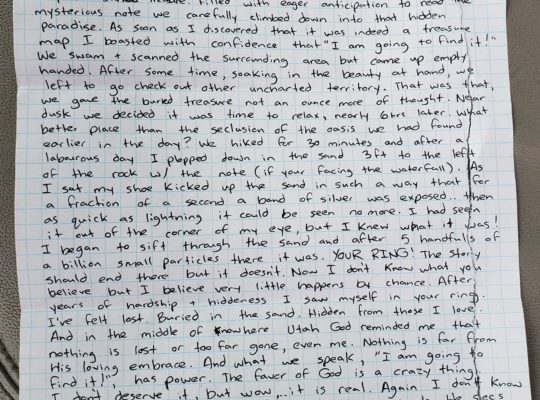 Filled with eager anticipation to read the
mysterious note we carefully climbed down into that hidden
paradise. As soon as I discovered that it was indeed a treasure
map I boasted with confidence that "I am going to find it!"
We swam + scanned the surrounding area but came up empty
handed. After some time, soaking in the beauty at hand, we
left to go check out other uncharted territory. That was that,
we gave the buried treasure not an ounce more of thought. Near
dusk we decided it was time to relax, nearly 6hrs later. What
better place than the seclusion of the oasis we had found
earlier in the day? We hiked for 30 minutes and after a
labourous day I plopped down in the sand 3ft to the left
of the rock w/ the note (if your facing the waterfall). As
I sat my shoe kicked up the sand in such a way that for
a fraction of a second a band of silver was exposed.. then
as quick as lightning it could be seen no more. I had seen
it out of the corner of my eye, but I knew what it was!
I began to sift through the sand and after 5 handfulls of
a billion small particles there it was. YOUR RING! The story
should end there but it doesn't. Now I don't know what you
believe but I believe very little happens by chance. After
years of hardship + hiddeness I saw myself in your ring.
I've felt lost. Buried in the sand. Hidden from those I love.
And in the middle of knowhere Utah God reminded me that
nothing is lost or too far gone, even me. Nothing is far from
His loving embrace. And what we speak, "I am going to
find it!", has power. The favor of God is a crazy thing.
I don't deserve it, but wow,..it is real. Again I don't know
He sees